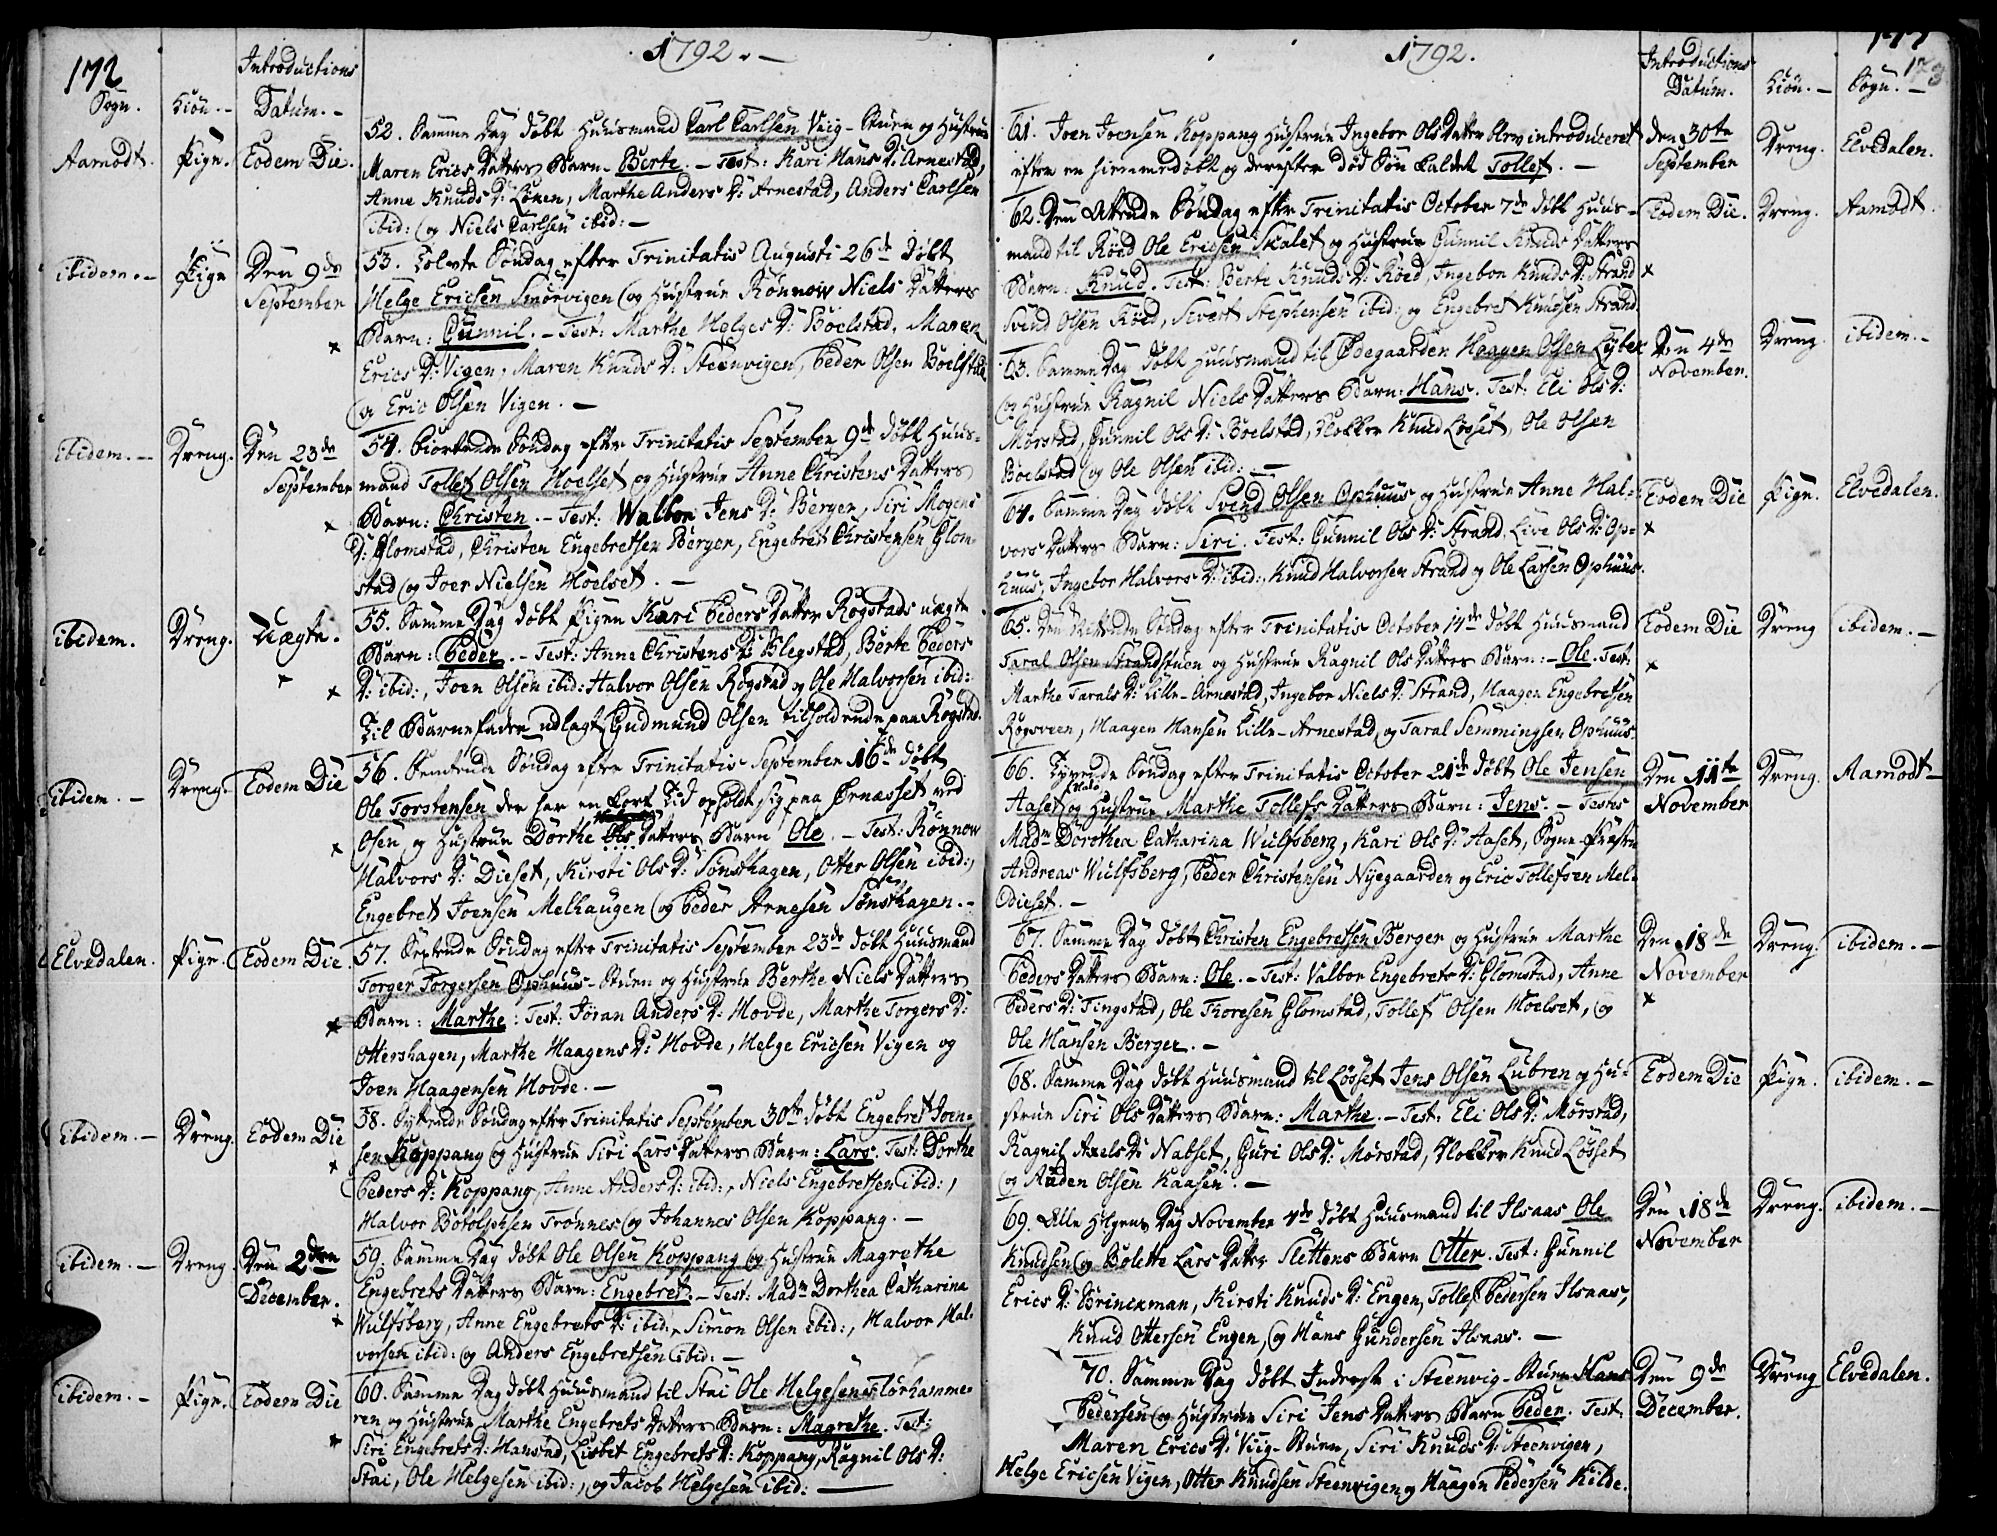 172
1792. -
Sogn. Kiön. - Introductions Datum. -
Aamodt. Pige. Eodem Die.
52. Samme Dag døbt Huusmand Carl Carlsen Viig-Stuen og Hustrue
Maren Erics Datters Barn: Berte. - Test: Kari Hans D: Arnestad,
Anne Knuds D: Lönen, Marthe Anders D: Arnestad, Anders Carlsen
ibid: og Niels Carlsen ibid: -
ibidem. - Pige Den 9de September
53. Tolvte Søndag efter Trinitatis Augusti 26de døbt
Helge Ericsen Smörvigen og Hustrue Rönnow Niels Datters
Barn: Gunnil. - Test: Marthe Helges D: Boelstad, Maren
Erics D: Vigen, Maren Knuds D: Steenvigen, Peder Olsen Boelstad
og Eric Olsen Vigen. -
ibidem. - Dreng. Den 23de September
54. Fiortende Søndag efter Trinitatis September 9de døbt Huus-
mand Tollef Olsen Hoelset og Hustrue Anne Christens Datters
Barn: Christen. - Test: Walbor Jens D: Berger, Siri Mogens
D: Glomstad, Christen Engebretsen Berger, Engebret Christensen Glom-
stad og Joer Nielsen Hoelset. -
ibidem. Dreng. Uægte.
55. Samme Dag døbt Pigen Kari Peders Datter Rogstads uægte
Barn: Peder. - Test: Anne Christens D: Blegstad, Berte Peders
D: ibid:, Joen Olsen ibid: Halvor Olsen Rogstad og Ole Halvorsen ibid:
Til Barnefader udlagt Gudmund Olsen tilholdende paa Rogstad.
ibidem. - Dreng. Eodem Die
56. Femtende Søndag efter Trinitatis September 16de døbt
Ole Torstensen der har en kort Tid opholdt sig paa Ornæsset ved
Osen, og Hustrue Dorthe Datters Barn Ole. - Test: Rönnow
Halvors D: Dieset, Kirsti Ols D: Sönsthagen, Otter Olsen ibid:,
Engebret Joensen Melhaugen og Peder Arnesen Sönsthagen. -
Elvedalen. Pige. Eodem Die.
57. Sextende Søndag efter Trinitatis September 23de døbt Huusmand
Torger Torgersen Ophuus-Stuen og Hustrue Berthe Niels Datters
Barn: Marthe: Test: Jöran Anders D: Hovde, Marthe Torgers D:
Ottershagen, Marthe Haagens D: Hovde, Helge Ericsen Vigen og
Joen Haagensen Hovde. -
ibidem. - Dreng. Eodem Die
58. Syttende Søndag efter Trinitatis September 30te døbt Engebret Joen-
sen Koppang og Hustrue Siri Lars Datters Barn: Lars. Test: Dorthe
Peders D: Koppang, Anne Anders D: ibid:, Niels Engebretsen ibid:,
Halvor Botolphsen Trönnes og Johannes Olsen Koppang. -
ibidem. - Dreng. Den 2den December.
59. Samme Dag døbt Ole Olsen Koppang og Hustrue Magrethe
Engebrets Datters Barn: Engebret. - Test: Madm Dorthea Catharina
Wulfsberg, Anne Engebrets D: ibid:, Simon Olsen ibid:, Halvor Hal-
vorsen ibid: og Anders Engebretsen ibid: -
ibidem. - Pige. Eodem Die
60. Samme Dag døbt Huusmand til Stai Ole Helgesen Storhamme-
ren og Hustrue Marthe Engebrets Datters Barn: Magrethe. Test:
Siri Engebrets D: Hanstad, Lisbet Engebrets D: Koppang, Ragnil Ols D:
Stai, Ole Helgesen ibid:, og Jacob Helgesen ibid: -
1792.
173
Introductions Datum. Kiön. - Sogn. -
61. Joen Joensen Koppang Hustrue Ingebor Ols Datter blev introduceret
efter en hiemmedøbt og derefter død Søn kaldet Tollef. -
den 30te September Dreng. Elvedalen.
62. Den Attende Søndag efter Trinitatis October 7de døbt Huus-
mand til Röed Ole Ericsen Skalet og Hustrue Gunnil Knuds Datters
Barn: Knud. Test: Berte Knuds D: Röed, Ingebor Knuds D: Strand
Svend Olsen Röed, Sivert Stephensen ibid: og Engebret Knudsen Strand.
Eodem Die. Dreng. Aamodt.
63. Samme Dag døbt Huusmand til Ødegaarden Haagen Olsen Lybek
og Hustrue Ragnil Niels Datters Barn: Hans. Test: Eli Ols D:
Mörstad, Gunnil Ols D: Boelstad, Klokker Knud Løsset, Ole Olsen
Boelstad og Ole Olsen ibid: -
Den 4de November. Dreng. ibidem. -
64. Samme Dag døbt Svend Olsen Ophuus og Hustrue Anne Hal-
vors Datters Barn: Siri. Test: Gunnil Ols D: Strand, Live Ols D: Op-
huus, Ingebor Halvors D: ibid:, Knud Halvorsen Strand og Ole Larsen Ophuus.
Eodem Die Pige. Elvedalen.
65. Den Nittende Søndag efter Trinitatis October 14de døbt Huusmand
Taral Olsen Strandstuen og Hustrue Ragnil Ols Datters Barn: - Ole. Test:
Marthe Tarals D: Lille-Arnestad, Ingebor Niels D: Strand, Haagen Engebretsen
Rogsveen, Haagen Hansen Lille-Arnestad, og Taral Semmingsen Ophuus.
Eodem Die Dreng ibidem. -
66. Tyvende Søndag efter Trinitatis October 21de døbt Ole Jensen
Aaset og Hustrue Marthe Tollefs Datters Barn: Jens. - Testes
Madm Dorothea Catharina Wulfsberg, Kari Ols D: Aaset, Sogne-Præsten
Andreas Wulfsberg, Peder Christensen Nyegaarden og Eric Tollefsen Mel-
dieset. -
Den 11te November Dreng. Aamodt -
67. Samme Dag døbt Christen Engebretsen Berger og Hustrue Marthe
Peders Datters Barn: Ole. - Test: Valbor Engebrets D: Glomstad, Anne
Peders D: Tingstad, Ole Thoresen Glomstad, Tollef Olsen Hoelset, og
Ole Hansen Berger. -
Den 18de November Dreng. ibidem. -
68. Samme Dag døbt Huusmand til Løsset Jens Olsen Lubren og Hu-
strue Siri Ols Datters Barn: Marthe. - Test: Eli Ols D: Mörstad,
Ragnil Axels D: Nabset, Guri Ols D: Mörstad, Klokker Knud Løsset
og Auden Olsen Kaasen. -
Eodem Die Pige. ibidem. -
69. Alle Helgens Dag November 4de døbt Huusmand til Ilsaas Ole
Knudsen og Bolette Lars Datter Slettens Barn Otter. Test: Gunnil
Erics D: Brinckman, Kirsti Knuds D: Engen, Tollef Pedersen Ilsaas,
Knud Ottersen Engen, og Hans Gundersen Ilsaas. -
Den 18de November Dreng. ibidem. -
70. Samme Dag døbt Inderst i Steenvig-Stuen Hans
Pedersen og Hustrue Siri Jens Datters Barn Peder. Test.
Maren Erics D: Viig-Stuen, Siri Knuds D: Steenvigen,
Helge Ericsen Vigen, Otter Knudsen Steenvigen og Haagen Pedersen Kilde.
Den 9de December. Dreng Elvedalen.